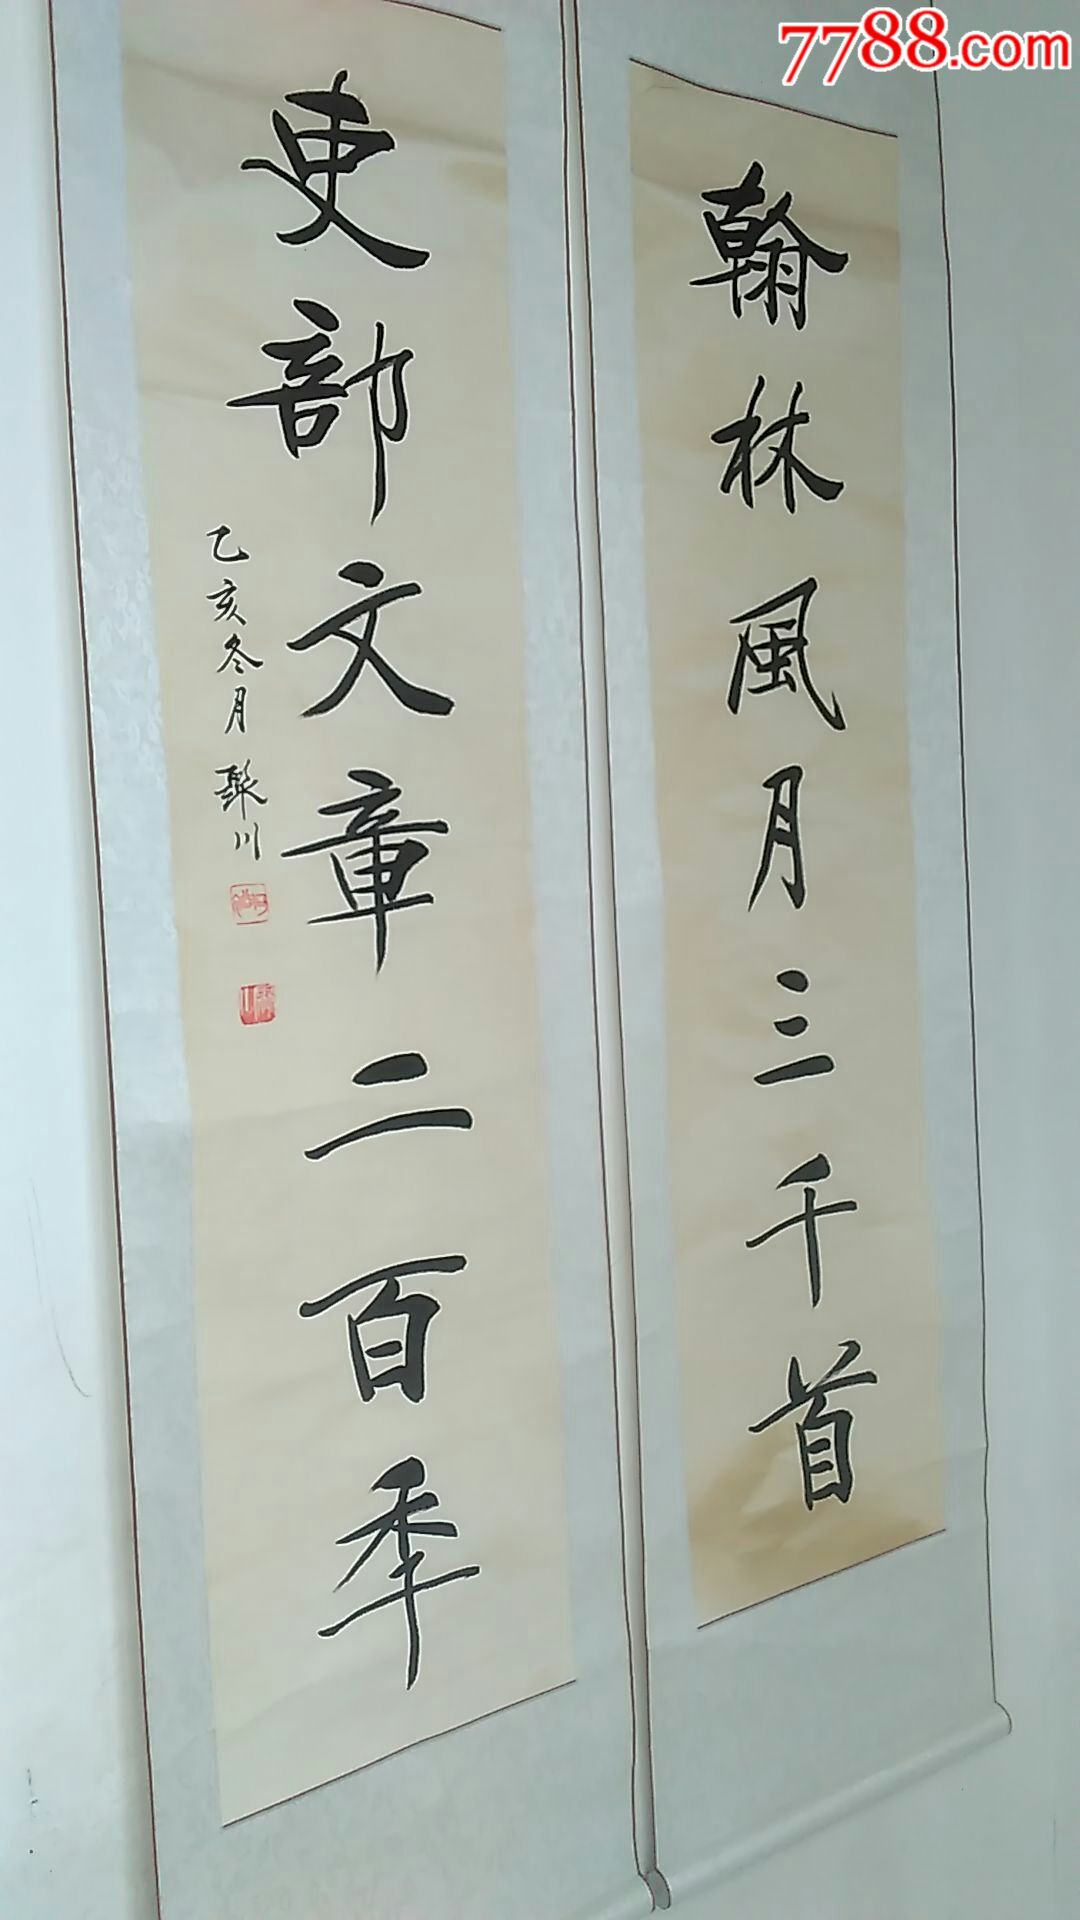 7788.com
翰林風月三千首
吏部文章二百年
乙亥冬月聚川